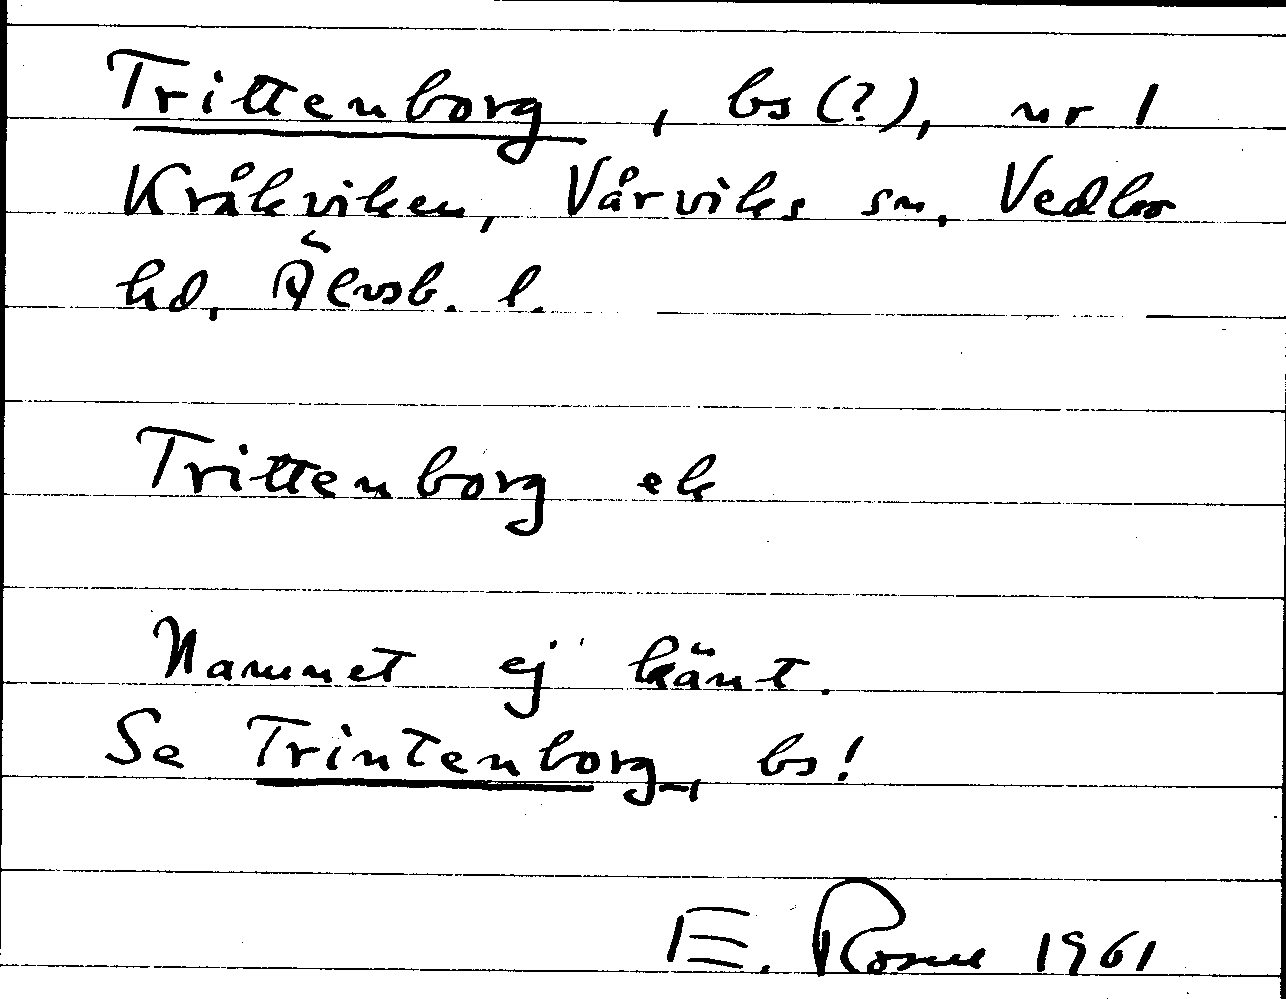 Trittenborg, bs (?), nr 1
Kråkviken, Vårviks sn, Vedbo
hd, Älvsb. l.
Trittenborg ek
Namnet ej känt.
Se Trintenborg, bs!
E. 1961